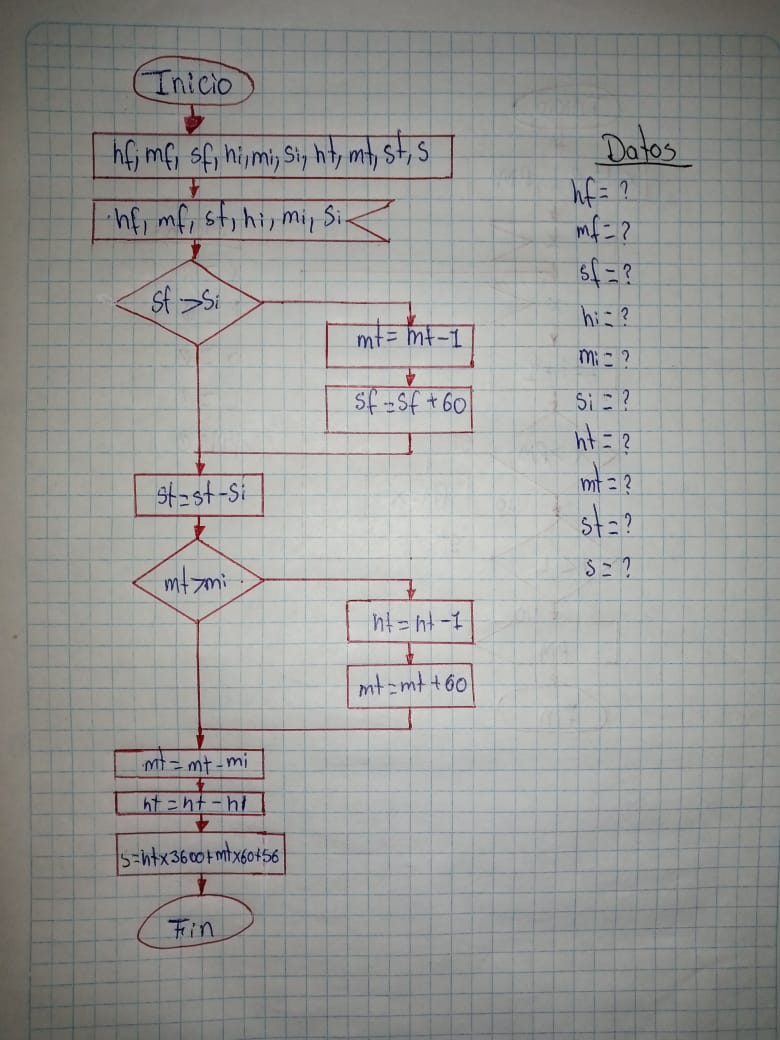 Inicio
hf, mf, sf, hi, mi, si, ht, mt, st, s
hf, mf, sf, hi, mi, si
sf > si
mt = mt - 1
sf = sf + 60
st = st - si
mt > mi
ht = ht - 1
mt = mt + 60
mt = mt - mi
ht = ht - hi
s = ht x 3600 + mt x 60 + 56
Fin
Datos
hf = ?
mf = ?
sf = ?
hi = ?
mi = ?
si = ?
ht = ?
mt = ?
st = ?
s = ?